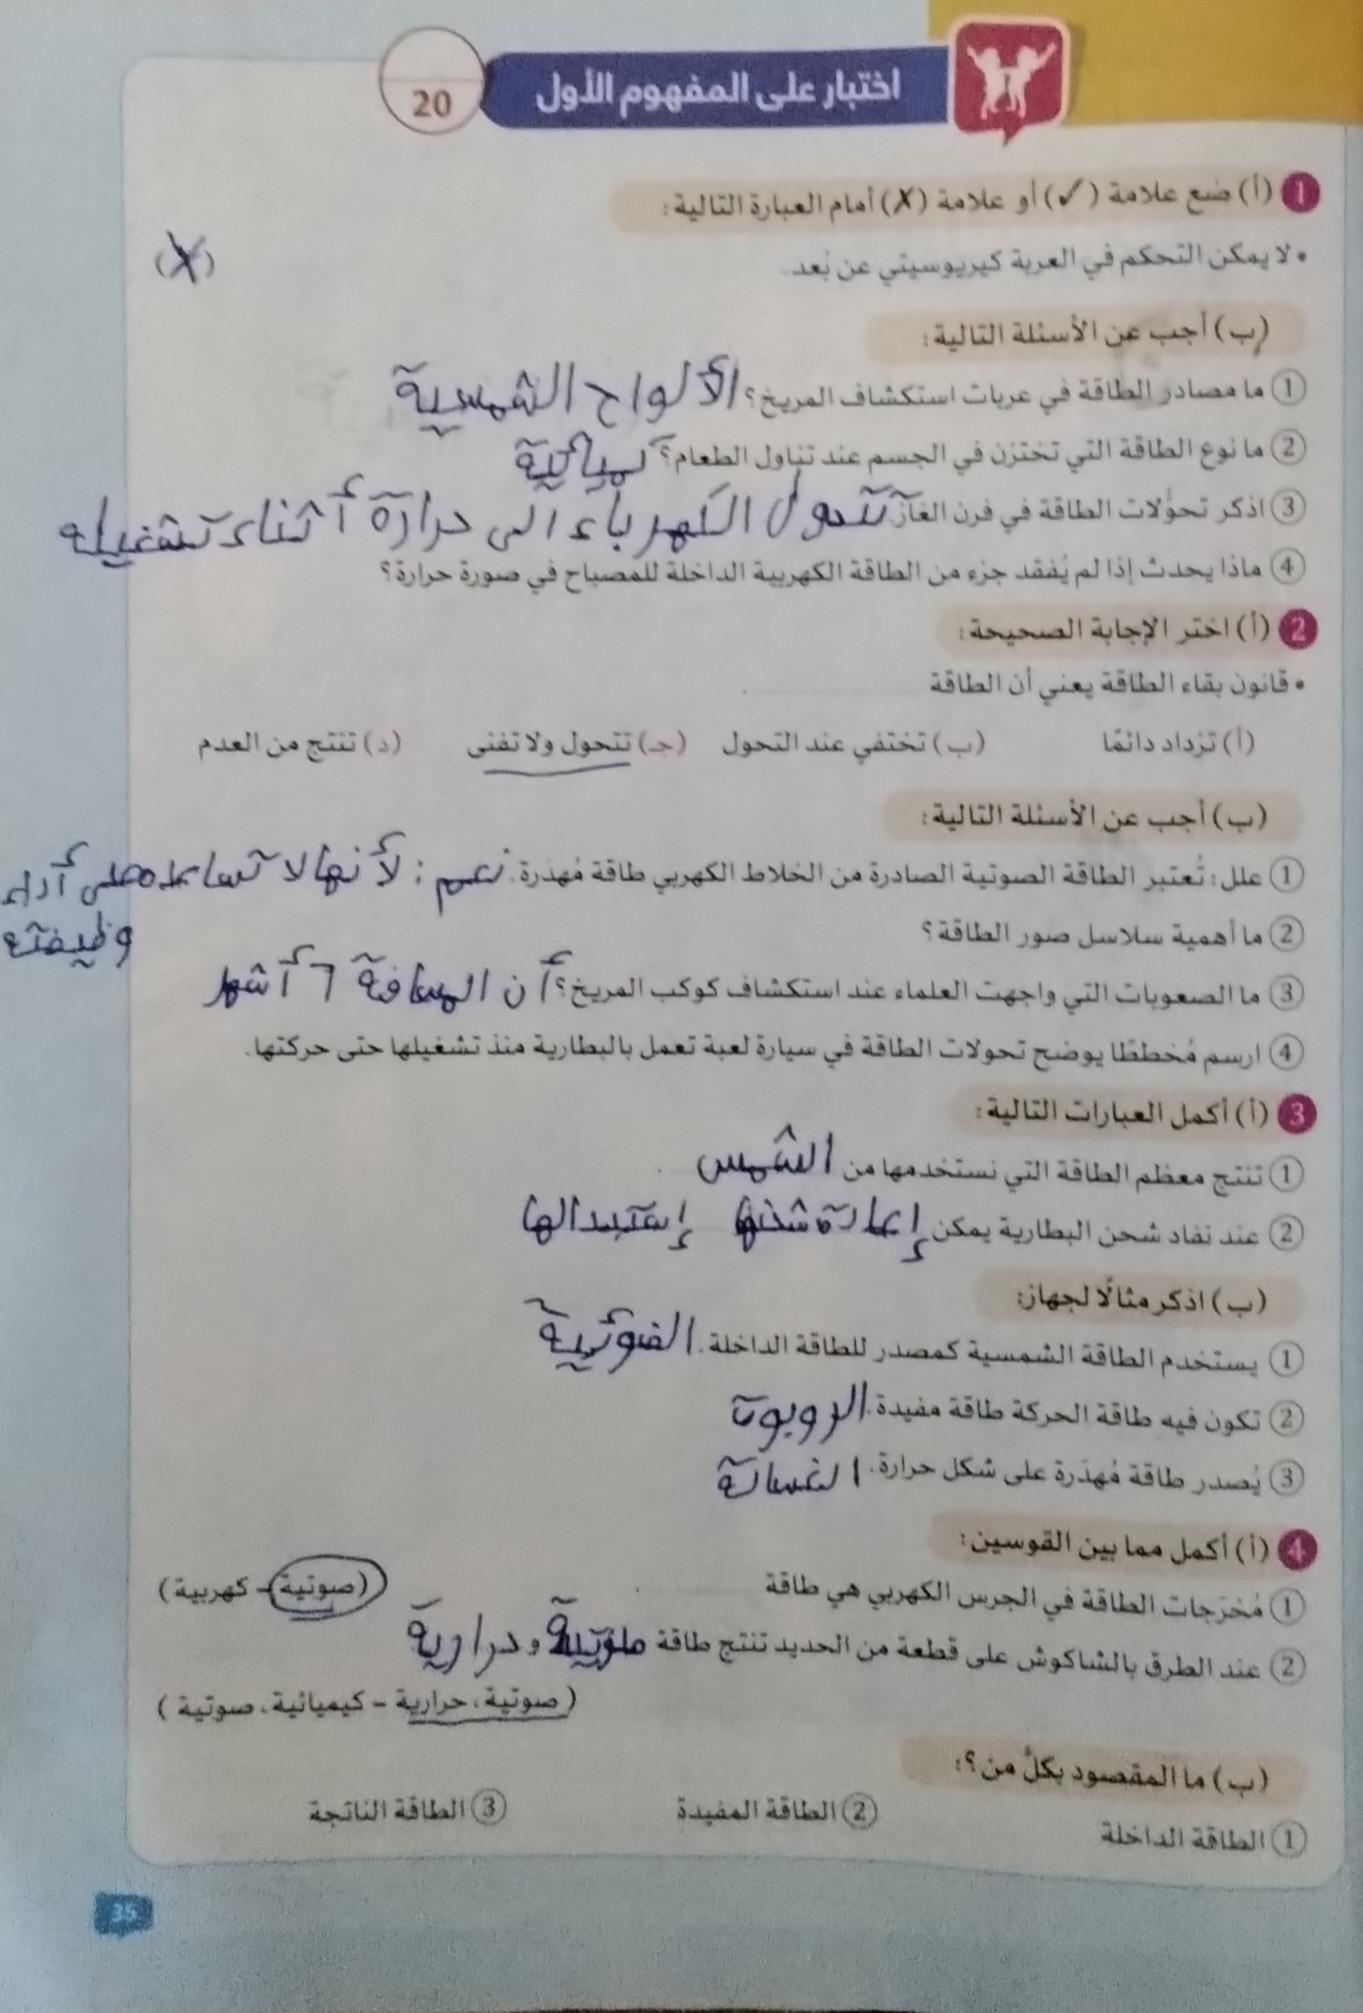 اختبار على المفهوم الأول
20
1 (أ) ضع علامة (✓) أو علامة (✗) أمام العبارة التالية:
• لا يمكن التحكم في العربة كيريوسيتي عن بُعد. (X)
(ب) أجب عن الأسئلة التالية:
① ما مصادر الطاقة في عربات استكشاف المريخ؟ الألواح الشمسية
② ما نوع الطاقة التي تختزن في الجسم عند تناول الطعام؟
③ اذكر تحوُّلات الطاقة في فرن الغاز. تتحول الكهرباء الى حرارة أثناء تشغيله
④ ماذا يحدث إذا لم يُفقد جزء من الطاقة الكهربية الداخلة للمصباح في صورة حرارة؟
2 (أ) اختر الإجابة الصحيحة:
• قانون بقاء الطاقة يعني أن الطاقة
(أ) تزداد دائمًا (ب) تختفي عند التحول (جـ) تتحول ولا تفنى (د) تنتج من العدم
(ب) أجب عن الأسئلة التالية:
① علل: تُعتبر الطاقة الصوتية الصادرة من الخلاط الكهربي طاقة مُهدَرة. نعم: لأنها لا تساعده على أداء
وظيفته
② ما أهمية سلاسل صور الطاقة؟
③ ما الصعوبات التي واجهت العلماء عند استكشاف كوكب المريخ؟ أن المسافة ٦ أشهر
④ ارسم مُخططًا يوضح تحولات الطاقة في سيارة لعبة تعمل بالبطارية منذ تشغيلها حتى حركتها.
3 (أ) أكمل العبارات التالية:
① تنتج معظم الطاقة التي نستخدمها من الشمس .
② عند نفاد شحن البطارية يمكن إعادة شحنها إستبدالها
(ب) اذكر مثالًا لجهاز:
① يستخدم الطاقة الشمسية كمصدر للطاقة الداخلة. الضوئية
② تكون فيه طاقة الحركة طاقة مفيدة. الروبوت
③ يُصدر طاقة مُهدَرة على شكل حرارة. الغسالة
4 (أ) أكمل مما بين القوسين:
① مُخرَجات الطاقة في الجرس الكهربي هي طاقة . (صوتية - كهربية)
② عند الطرق بالشاكوش على قطعة من الحديد تنتج طاقة صوتية وحرارية
(صوتية، حرارية - كيميائية، صوتية)
(ب) ما المقصود بكلٍّ من؟:
① الطاقة الداخلة ② الطاقة المفيدة ③ الطاقة الناتجة
35